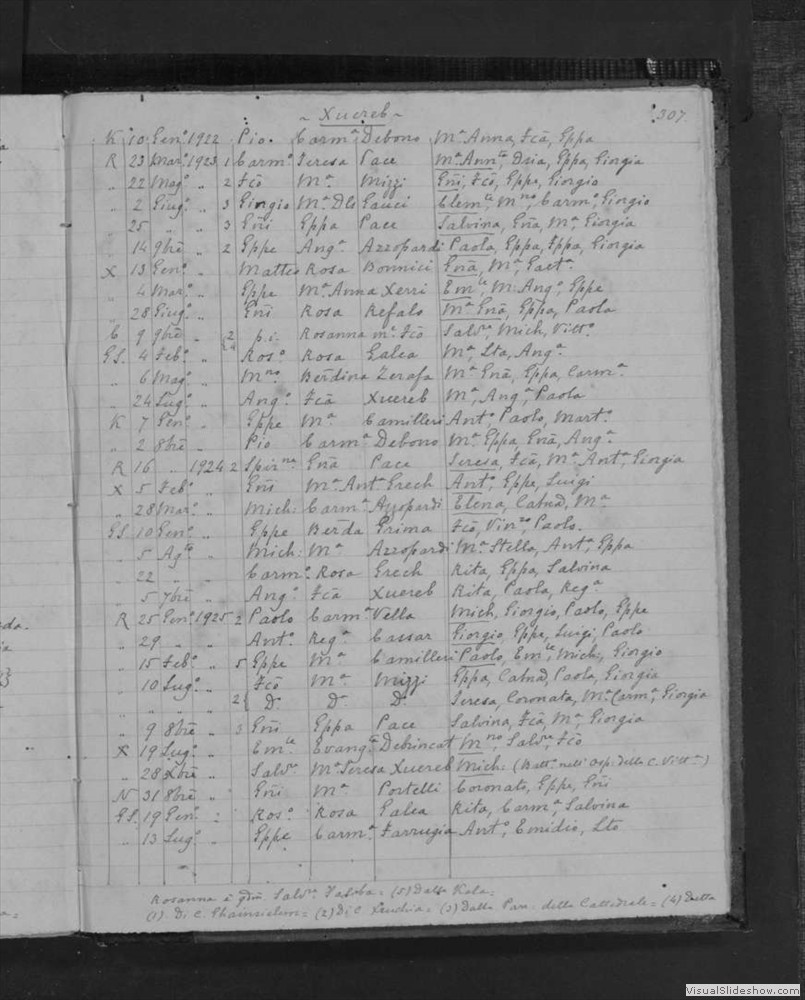 ~ Xuereb ~ 307
K 10 Gen.º 1922 Pio. Carm.ª Debono M.ª Anna, Fcā, Eppa
R 23 Mar.º 1923 1 Carm.º Teresa Pace M.ª Ann.ta Dsia, Eppa, Giorgia
„ 22 Mag.º „ 2 Fcō M.ª Mizzi Gñi, Fcō, Eppe, Giorgio
„ 2 Giug.º „ 3 Giorgio M.ª Dls Gauci Clem.te, M.no, Carm.º, Giorgio
„ 25 „ „ 3 Gñi Eppa Pace Salvina, Gñā, M.ª, Giorgia
„ 14 9brē „ 2 Eppe Ang.ª Azzopardi Paola, Eppa, Giorgia
X 13 Gen.º „ Matteo Rosa Bonnici Gñā, M.ª, Gaet.ª
„ 4 Mar.º „ Eppe M.ª Anna Xerri Em.le, M. Ang.º, Eppe
„ 28 Giug.º „ Gñi Rosa Refalo M.ª Gñā, Eppa, Paola
C 9 9brē „ 2 4 p.i. Rosanna m.ª Fcō Salv.re, Mich, Vitt.º
GS. 4 Feb.º „ Ros.º Rosa Galea M.ª, Lta, Ang.ª
„ 6 Mag.º „ M.no Berdina Zerafa M.ª Gñā, Eppa, Carm.ª
„ 24 Lug.º „ Ang.º Fcā Xuereb M.ª, Ang.ª, Paola
K 7 Gen.º „ Eppe M.ª Camilleri Ant.º, Paolo, Mart.º
„ 2 8brē „ Pio Carm.ª Debono M.ª Eppa, Gñā, Ang.ª
R 16 „ 1924 2 Gñā Pace Teresa, Fcā, M.ª Ant.ª, Giorgia
X 5 Feb.º „ Gñi M.ª Ant.ª Grech Ant.º, Eppe, Luigi
„ 28 Mar.º „ Mich: Carm.ª Azzopardi Elena, Catnā, M.ª
GS. 10 Gen.º „ Eppe Berda Grima Fcō, Vin.zo, Paolo.
„ 5 Ag.to „ Mich: M.ª Azzopardi M.ª Stella, Ant.ª, Eppa
„ 22 „ „ Carm.º Rosa Grech Rita, Eppa, Salvina
„ 5 7brē „ Ang.º Fcā Xuereb Rita, Paola, Reg.ª
R 25 Gen.º 1925 2 Paolo Carm.ª Vella Mich, Giorgio, Paolo, Eppe
„ 29 „ „ Ant.º Reg.ª Cassar Giorgio, Eppe, Luigi, Paolo
„ 15 Feb.º „ 5 Eppe M.ª Camilleri Paolo, Em.le, Mich:, Giorgio
„ 10 Lug.º „ Fcō M.ª Mizzi Eppa, Catnā, Paola, Giorgia
„ „ „ 2{ D.º D.º D.º Teresa, Coronata, M.ª Carm.ª, Giorgia
„ 9 8brē „ 3 Gñi Eppa Pace Salvina, Fcā, M.ª, Giorgia
X 19 Lug.º „ Em.le Evang.ta Debrincat M.no, Salv.re, Fcō
„ 28 Xbrē „ Salv.re M.ª Teresa Xuereb Mich: (Batt.º nell' Osp: della C. Vitt.ª)
N 31 8brē „ Gñi M.ª Portelli Coronato, Eppe, Gñi
GS. 19 Gen.º „ Ros.º Rosa Galea Rita, Carm.ª, Salvina
„ 13 Lug.º „ Eppe Carm.ª Farrugia Ant.º, Emidio, Lto
Rosanna è qdm Salv.re = (5) Dalla Kala =
(1) Di C. Ghainsielem = (2) Di C Xeuchia = (3) Dalla Par. della Cattedrale = (4) Detta
VisualSlideshow.com